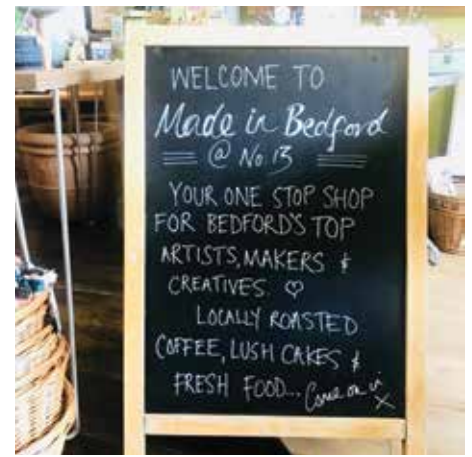 WELCOME TO
Made in Bedford
@ No 13
YOUR ONE STOP SHOP
FOR BEDFORD'S TOP
ARTISTS, MAKERS &
CREATIVES. ♡
LOCALLY ROASTED
COFFEE, LUSH CAKES &
FRESH FOOD... Come on in
X